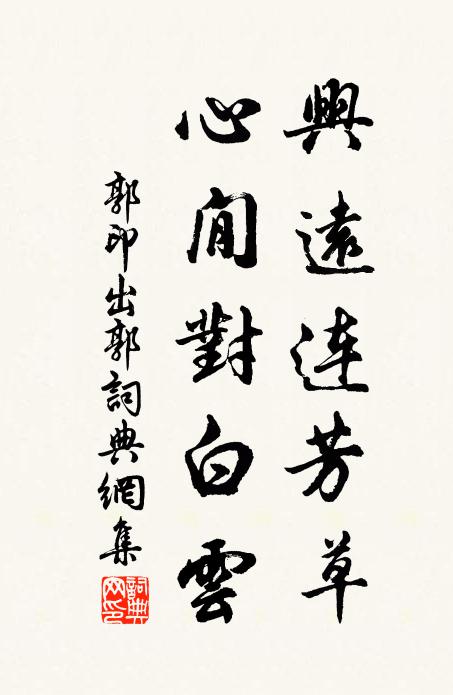 興遠連芳草
心閒對白雲
郭印出郭詞典網集
詞典網印